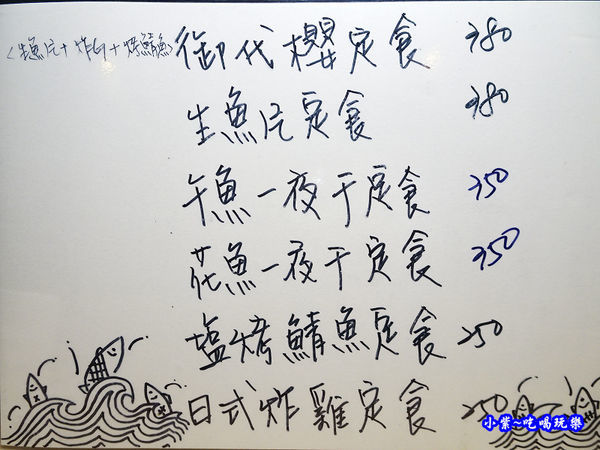 <生魚片+炸物+烤鯖魚> 御代櫻定食 380
生魚片定食 380
午魚一夜干定食 350
花魚一夜干定食 350
塩烤鯖魚定食 250
日式炸雞定食 250
小紫~吃喝玩樂